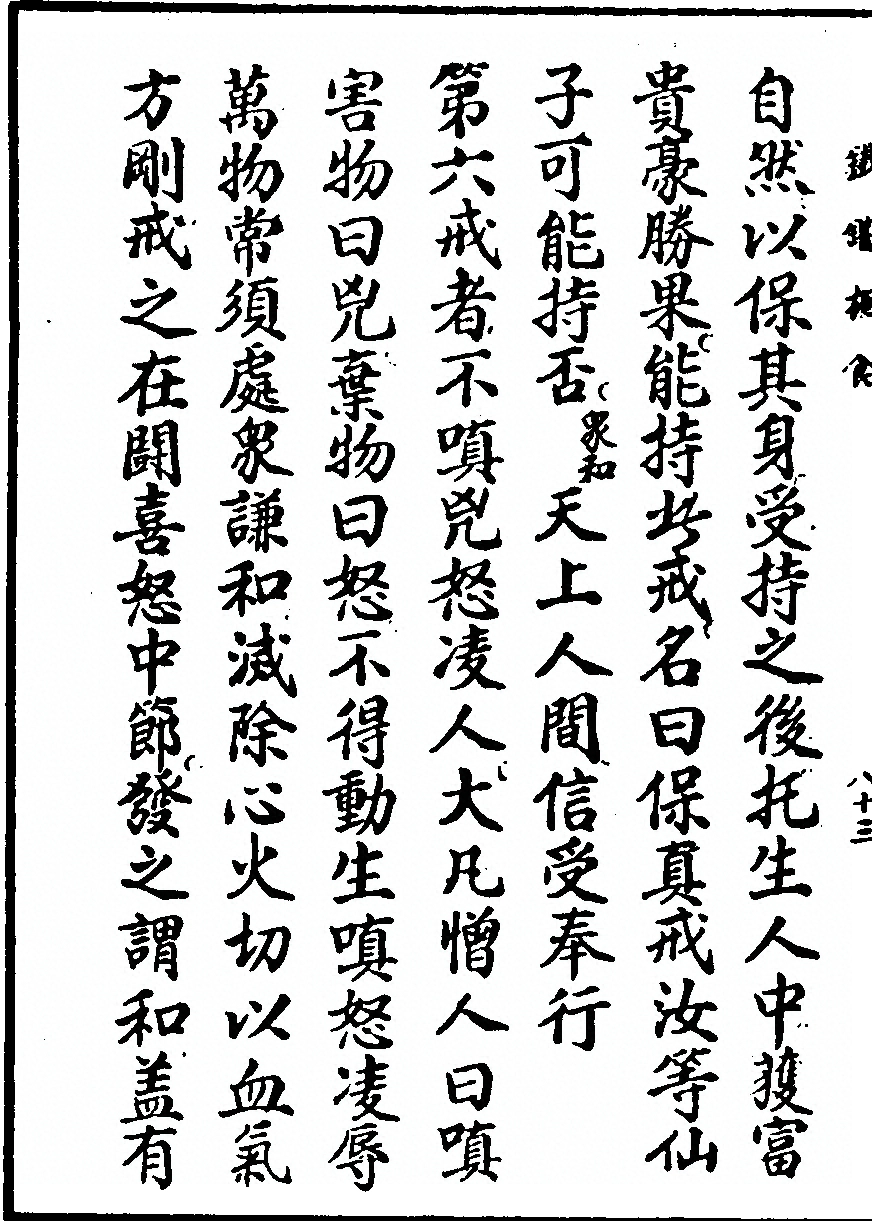 八十三
自然以保其身受持之後托生人中獲富
貴豪勝果能持此戒名曰保真戒汝等仙
子可能持否衆和天上人間信受奉行
第六戒者不嗔兇怒凌人大凡憎人曰嗔
害物曰兇棄物曰怒不得動生嗔怒凌辱
萬物常須處衆謙和滅除心火切以血氣
方剛戒之在鬪喜怒中節發之謂和盖有